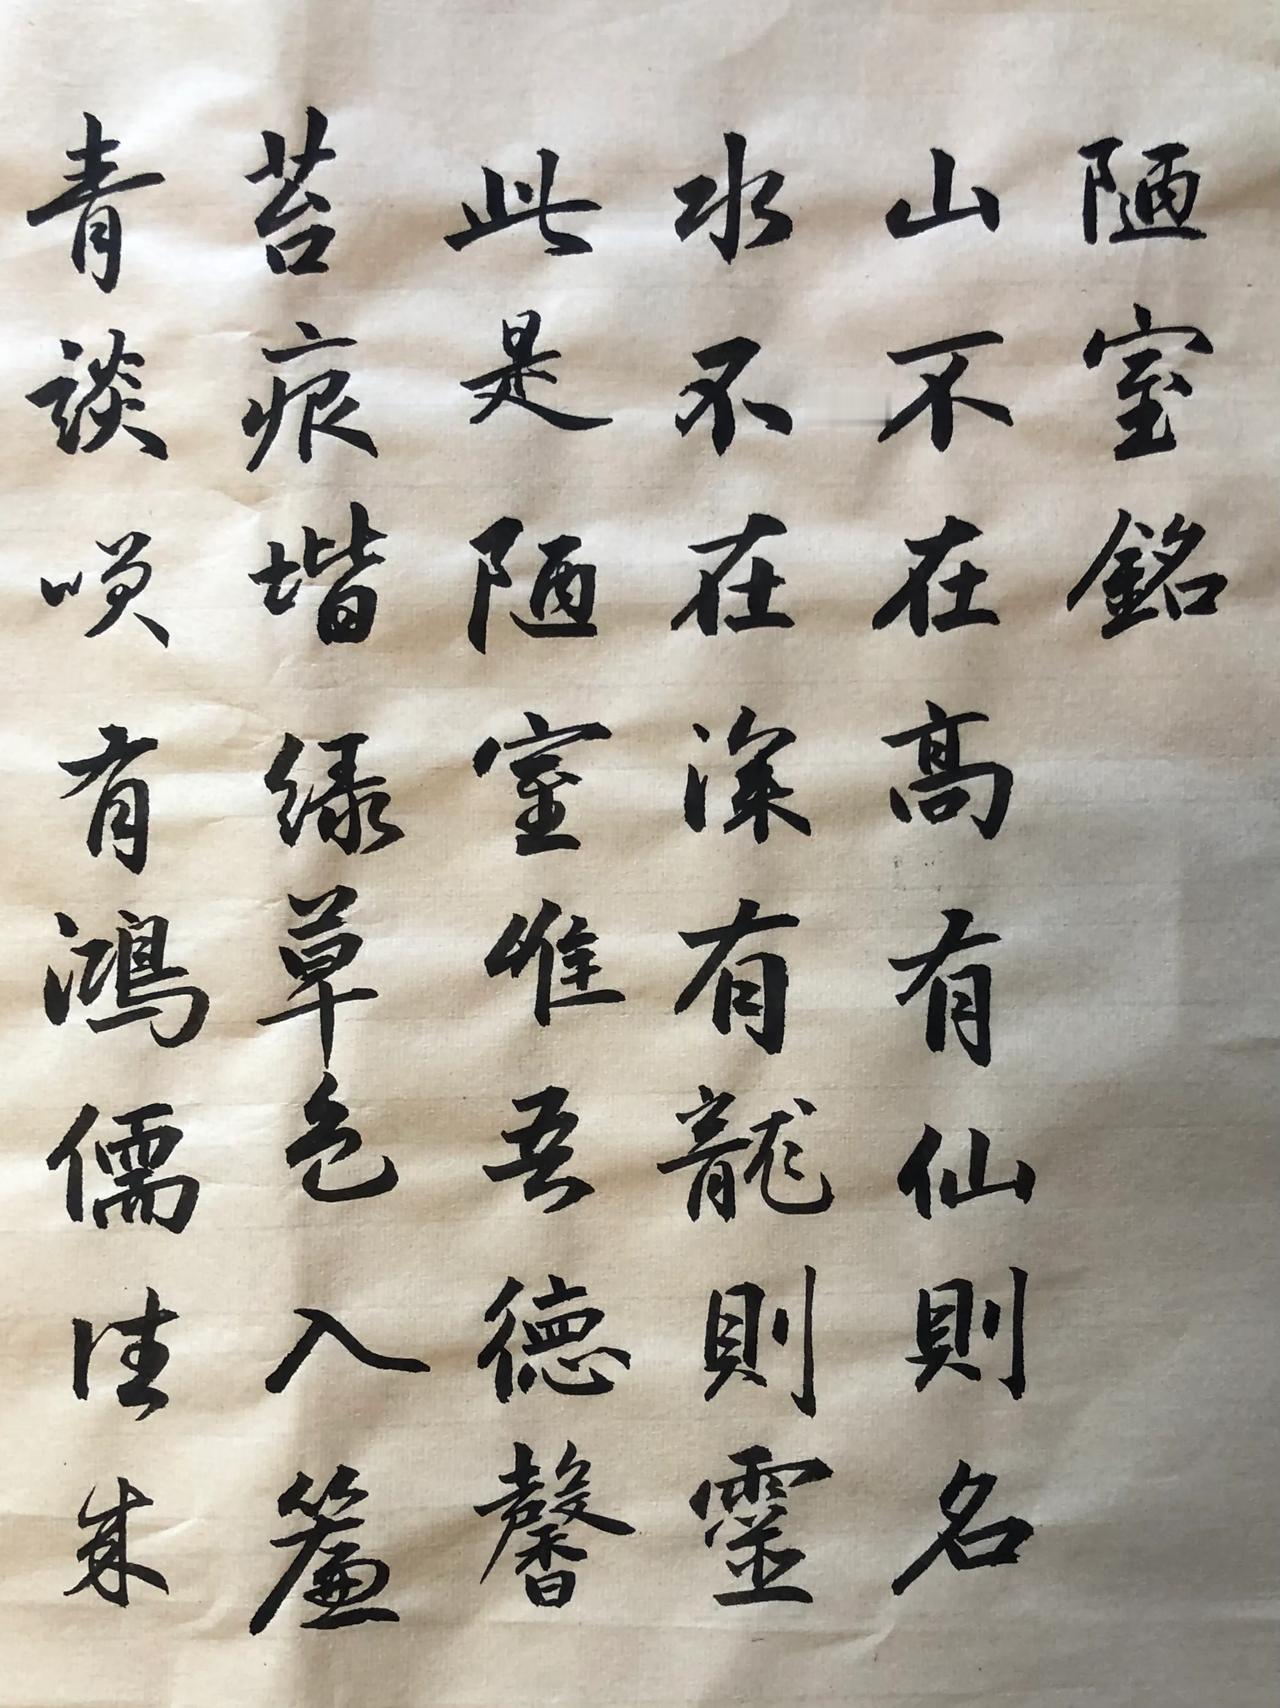 陋室銘
山不在高有仙則名
水不在深有龍則靈
此是陋室惟吾德馨
苔痕堦绿草色入簾
青談咲有鴻儒往来